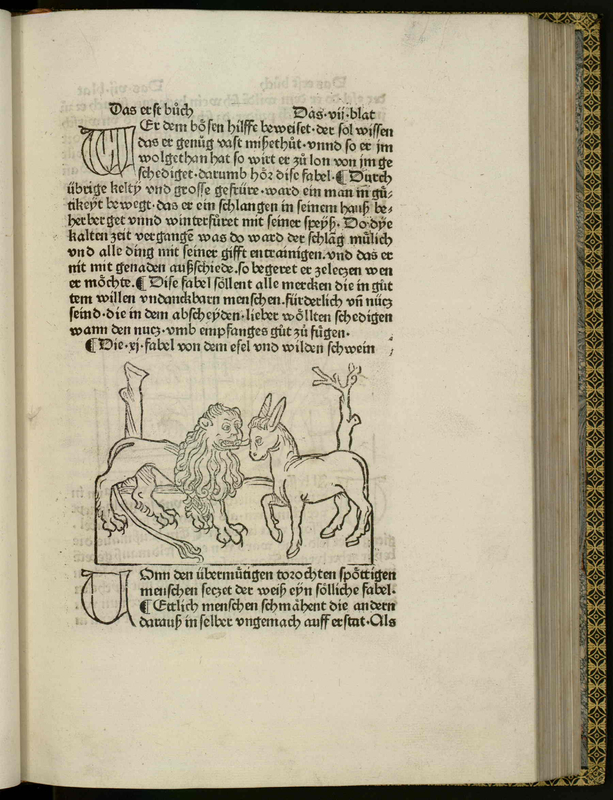 Das erst bůch Das·vij·blat
WEr dem bösen hilffe beweiset·der sol wissen
das er genůg vast mißethůt·vnnd so er jm
wolgethan hat so wirt er zů lon von jm ge
schediget·darumb hör dise fabel·¶ Durch
übrige kelty vnd grosse gefrüre·ward ein man in gü-
tikeyt bewegt·das er ein schlangen in seinem hauß be-
herberget vnnd winterfüret mit seiner speyß· Do dye
kalten zeit vergangē was do ward der schlāg mülich
vnd alle ding mit seiner gifft entrainigen·vnd das er
nit mit genaden außschiede·so begeret er zeleczen wen
er möchte·¶ Dise fabel söllent alle mercken die in gůt
tem willen vndanckbarn menschen·fürderlich vñ nücz
seind·die in dem abscheyden·lieber wöllten schedigen
wann den nucz·vmb empfanges gůt zů fůgen·
¶Die·xj·fabel von dem esel vnd wilden schwein
VOnn den übermütigen torochten spöttigen
menschen seczet der weiß eyn sölliche fabel·
¶ Ettlich menschen schmähent die andern
darauß in selber vngemach auff erstat·Als